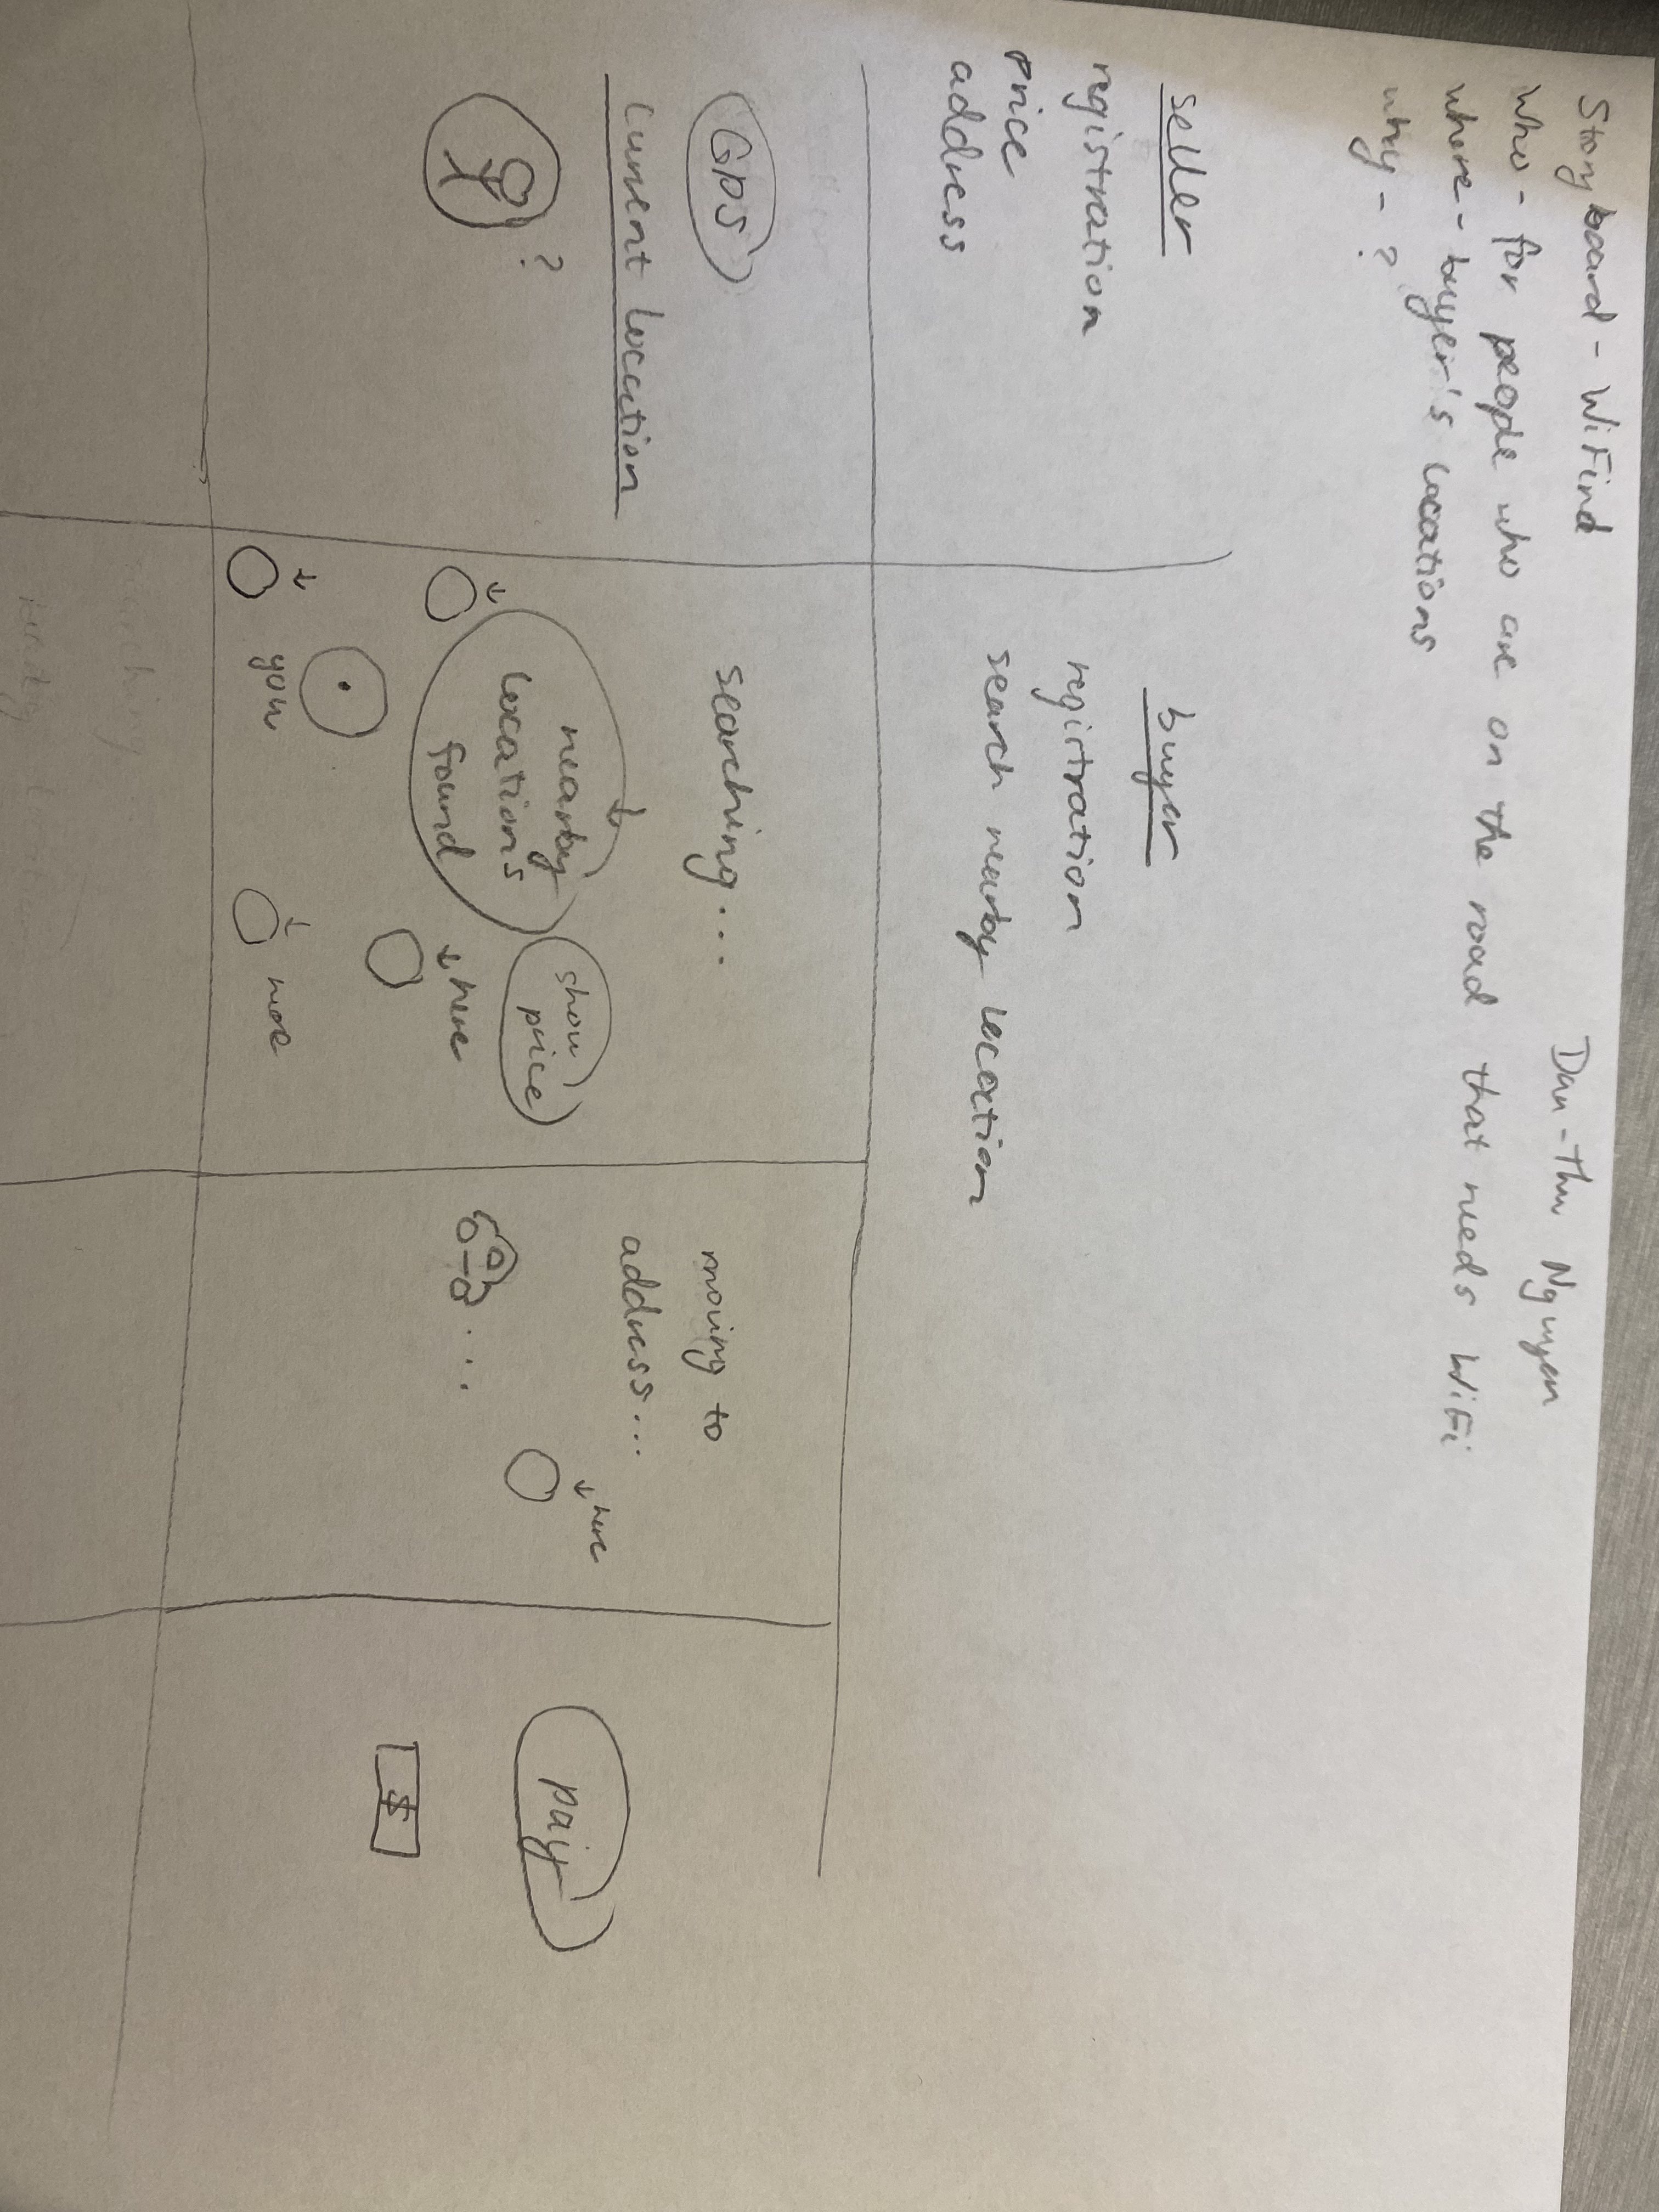 Storyboard - WiFind
Dan-Thu Nguyen
who - for people who are on the road that needs WiFi
where - buyer's locations
why - ?
seller
registration
price
address
buyer
regirtration
search nearby location
GPS
current location
?
searching...
nearby
locations
found
show
price
here
you
more
moving to
address...
here
pay
$